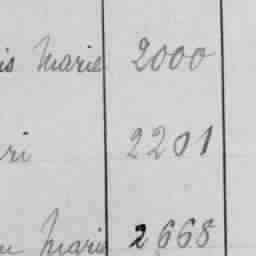 is Marie 2000
ri 2201
Marie 2668